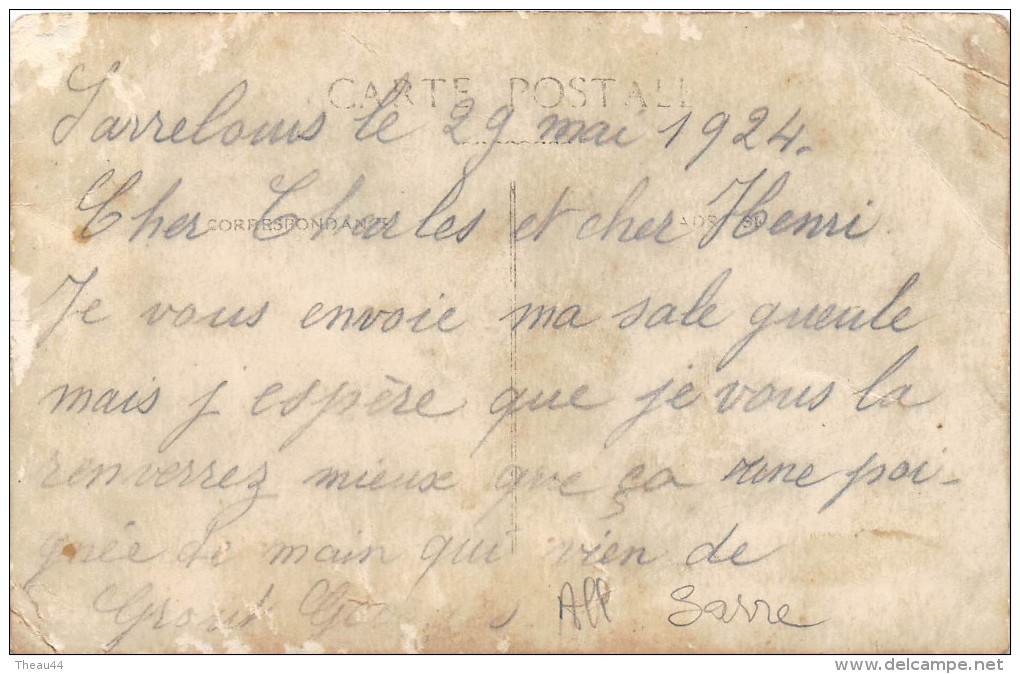 CARTE POSTALE
Sarrelouis le 29 mai 1924.
CORRESPONDANCE
Cher Charles et cher Henri
Je vous envoie ma sale gueule
mais j espère que je vous la
renverrez mieux que ça une poi-
gnée de main qui vien de
All Sarre
Theau44
www.delcampe.net